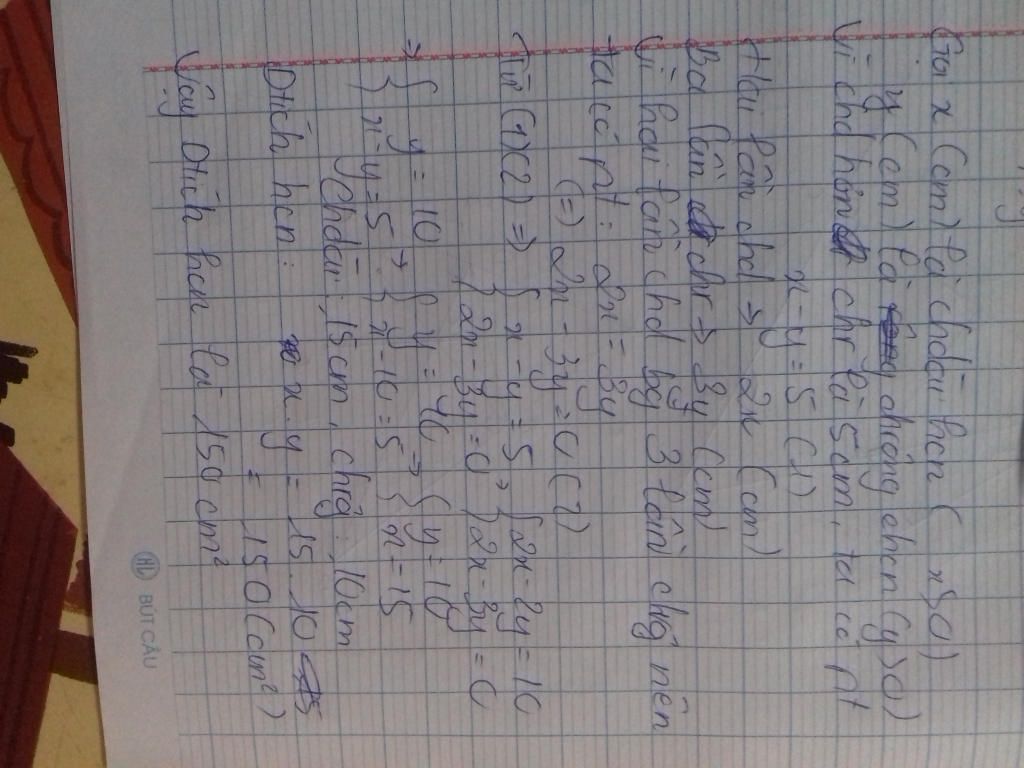 Gọi x (cm) là chdài hcn (x>0)
y (cm) là chiông chcn (y>0)
Vì chd hơn chr là 5cm, ta có pt
x - y = 5 (1)
Hai lần chd → 2x (cm)
Ba lần chr → 3y (cm)
Vì hai lần chd bg 3 lần chg nên
ta có pt: 2x = 3y
(=) 2x - 3y = 0 (2)
Từ (1)(2) => { x - y = 5 → { 2x - 2y = 10
{ 2x - 3y = 0 { 2x - 3y = 0
=> { y = 10 → { y = 10 → { y = 10
{ x - y = 5 { x - 10 = 5 { x = 15
Chdài: 15cm, chiợg: 10cm
Dtích hcn: x.y = 15.10
= 150 (cm²)
Vậy Dtích hcn là 150 cm²
BÚT CÂU